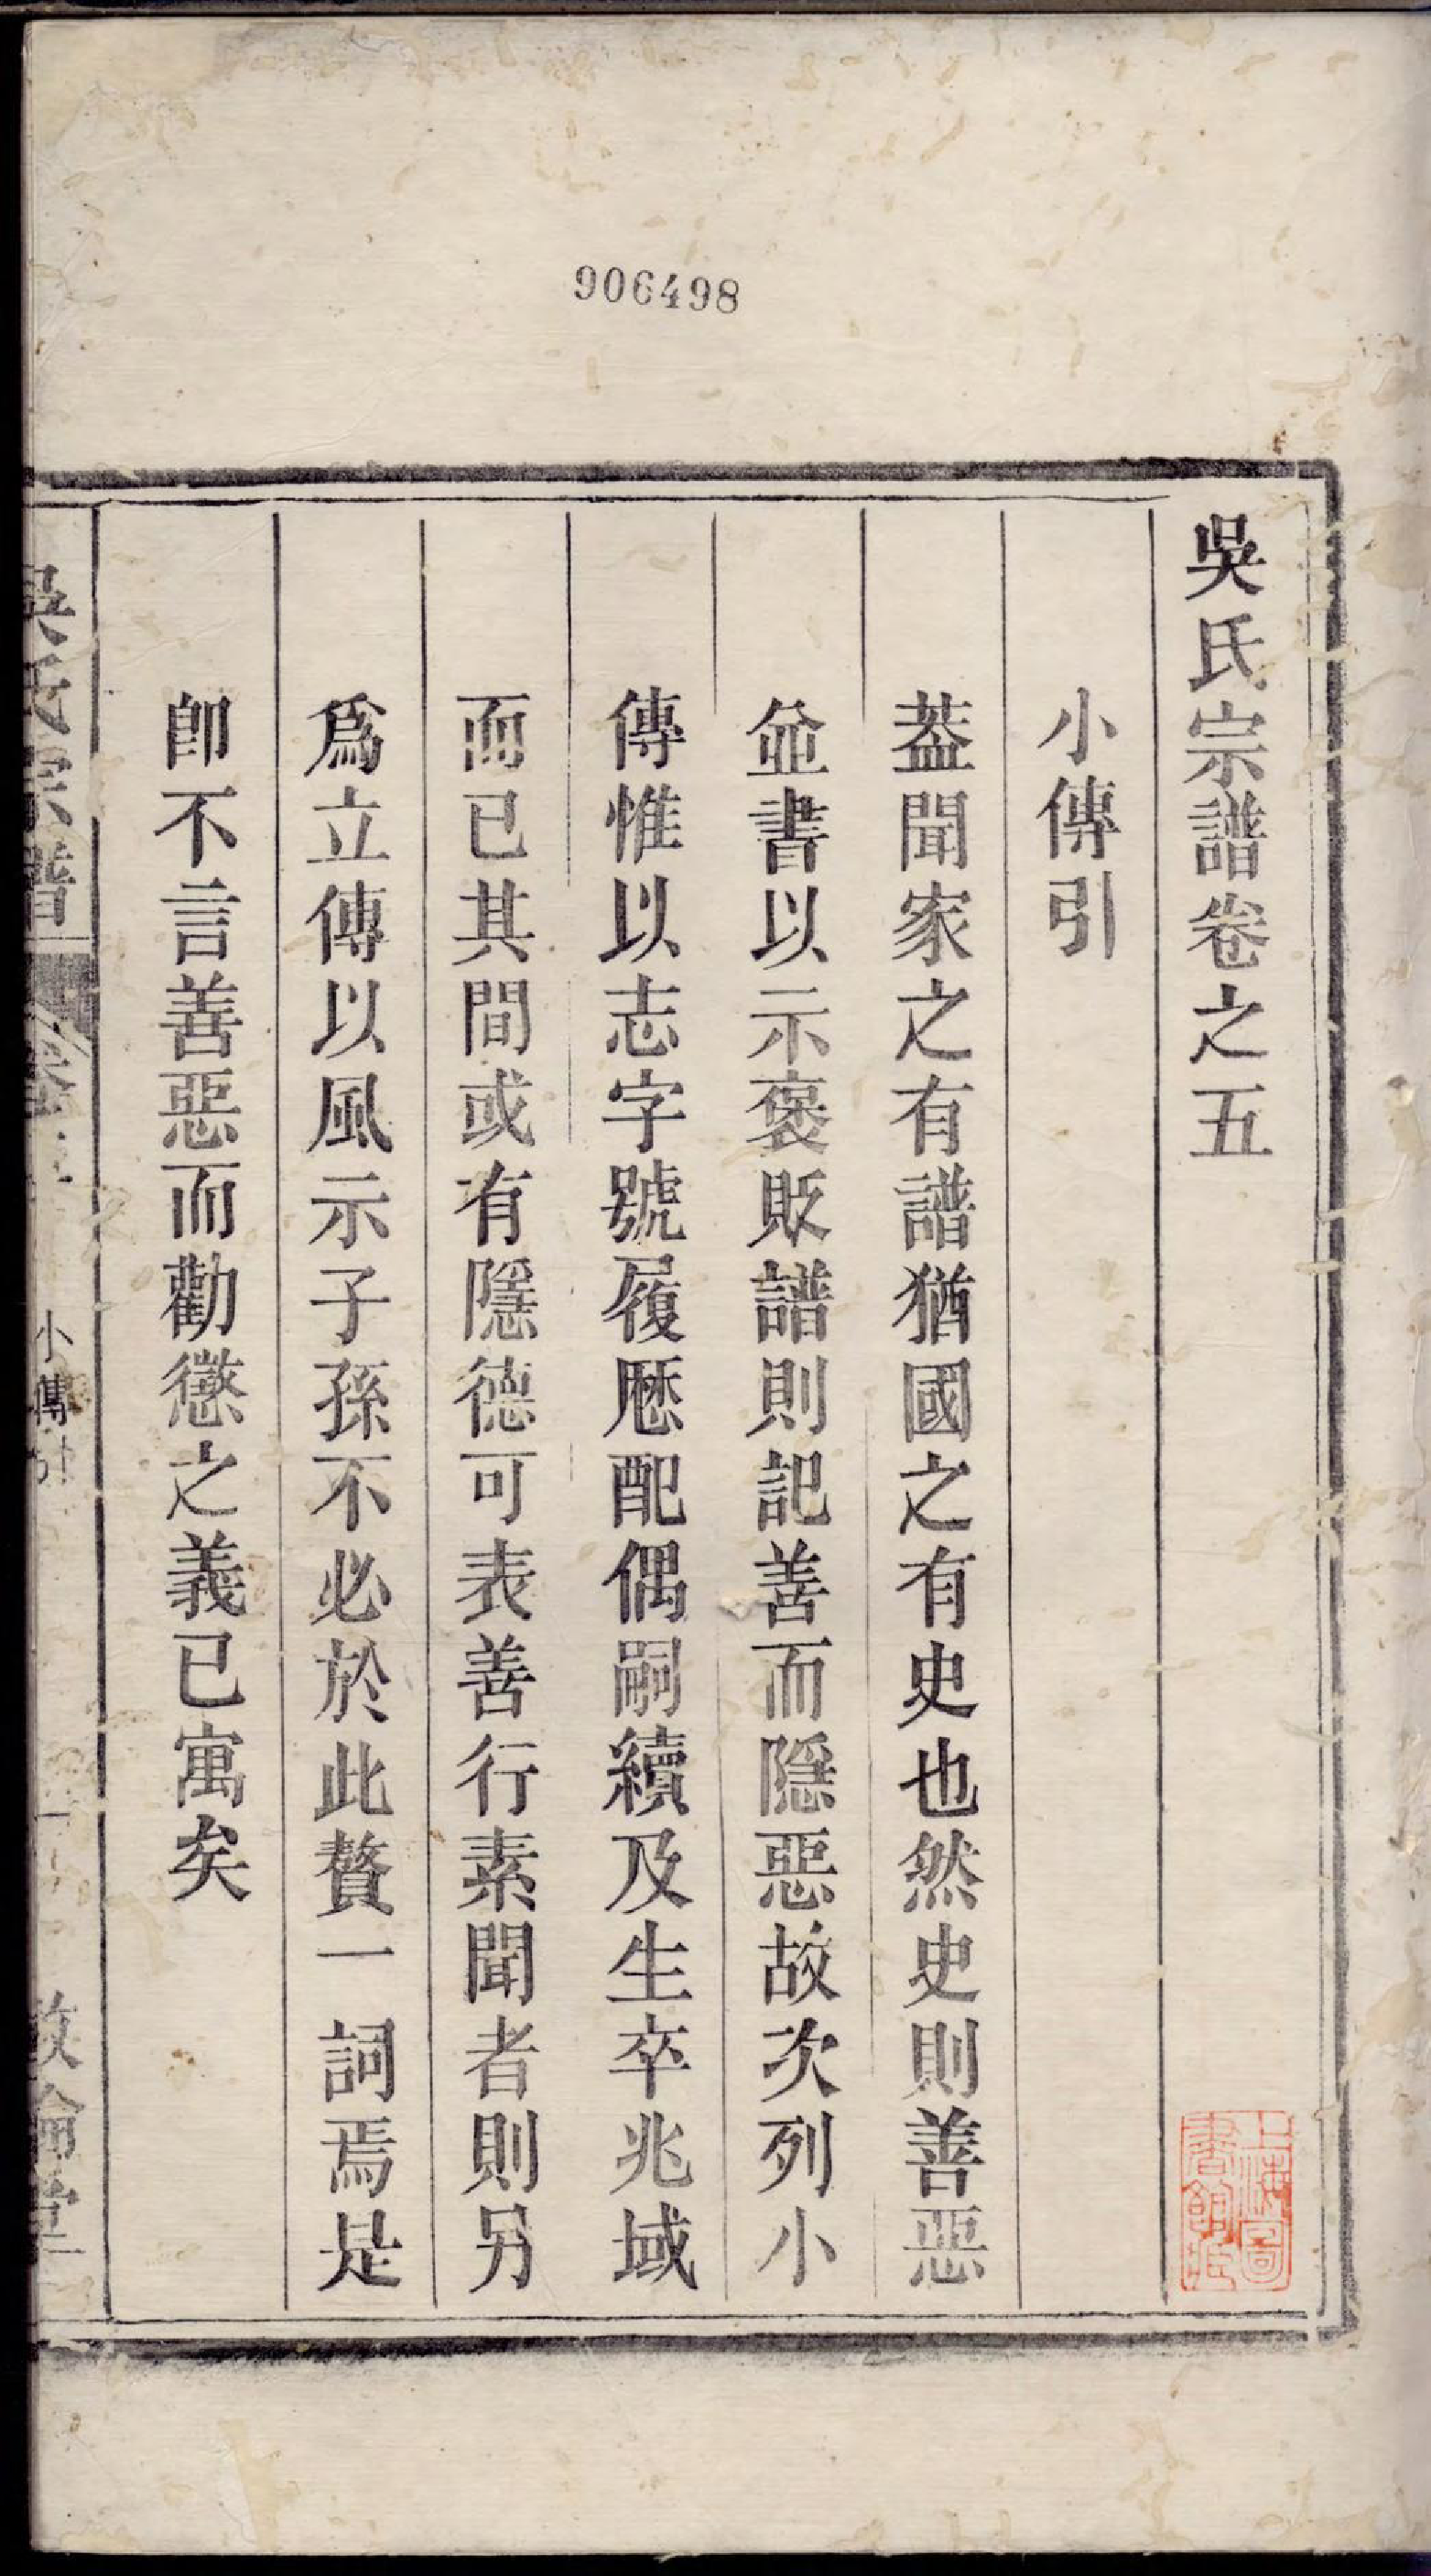 906498
吳氏宗譜卷之五
小傳引
葢聞家之有譜猶國之有史也然史則善惡
並書以示褒貶譜則記善而隱惡故次列小
傳惟以志字號履歷配偶嗣續及生卒兆域
而已其間或有隱德可表善行素聞者則另
爲立傳以風示子孫不必於此贅一詞焉是
卽不言善惡而勸懲之義已寓矣
吳氏宗譜
小傳引
倫堂
上海圖
書館藏